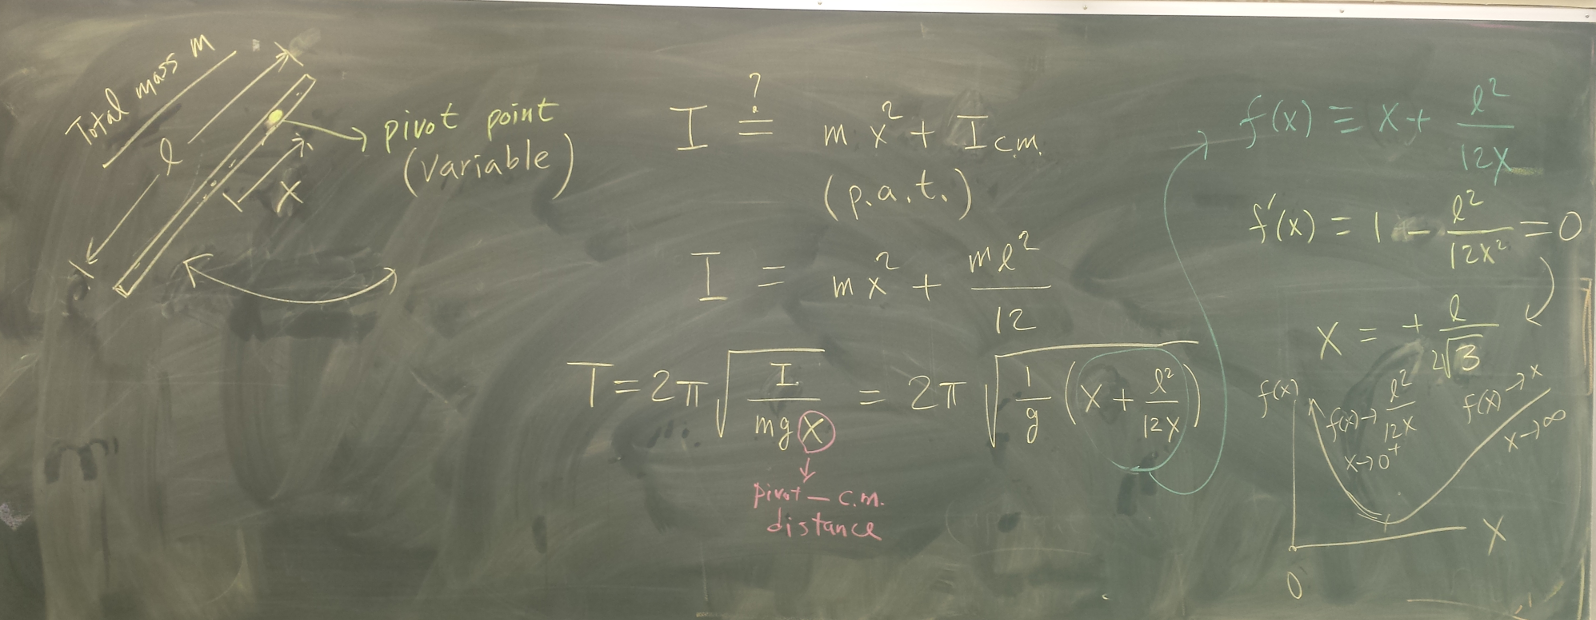 Total mass m
l
x
pivot point
(variable)
I ≟ mx² + I c.m.
(p.a.t.)
I = mx² + ml²/12
T = 2π √(I/mgx) = 2π √(1/g (x + l²/12x))
pivot – c.m.
distance
f(x) ≡ x + l²/12x
f'(x) = 1 - l²/12x² = 0
x = + l/2√3
f(x)
f(x) → l²/12x
x → 0⁺
f(x) → x
x → ∞
x
0